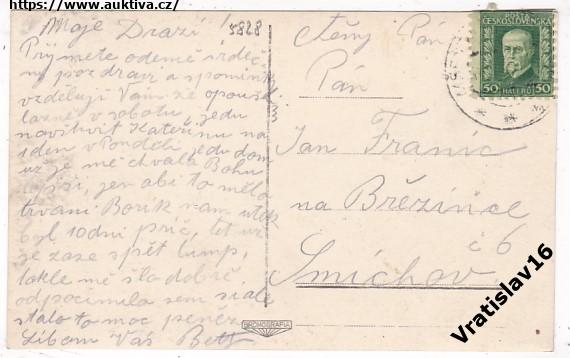 https://www.auktiva.cz/
5828
Moje Drazí!
Přijmete odemě srdeč
ný pozdrav a spomínk
vzdělují Vám že opoušt
lazně v sobotu, jedu
navštívit Kateřinu na
1 den v Pondělí jedu dom
už je mě chvala Bohu
lepší, jen abi to mělo
trvaní Borik nam utek
byl 10 dní prič, let už
je zase spět lump,
takle mě šlo dobře
odpočinula sem si ale
stalo to moc peněz
Líbem Váš Bett
Ctěný Pán
Pán
Jan Franic
na Březince
č 6
Smíchov
POŠTA
ČESKOSLOVENSKÁ
50 HALÉŘŮ 50
GRAFIA
Vratislav16